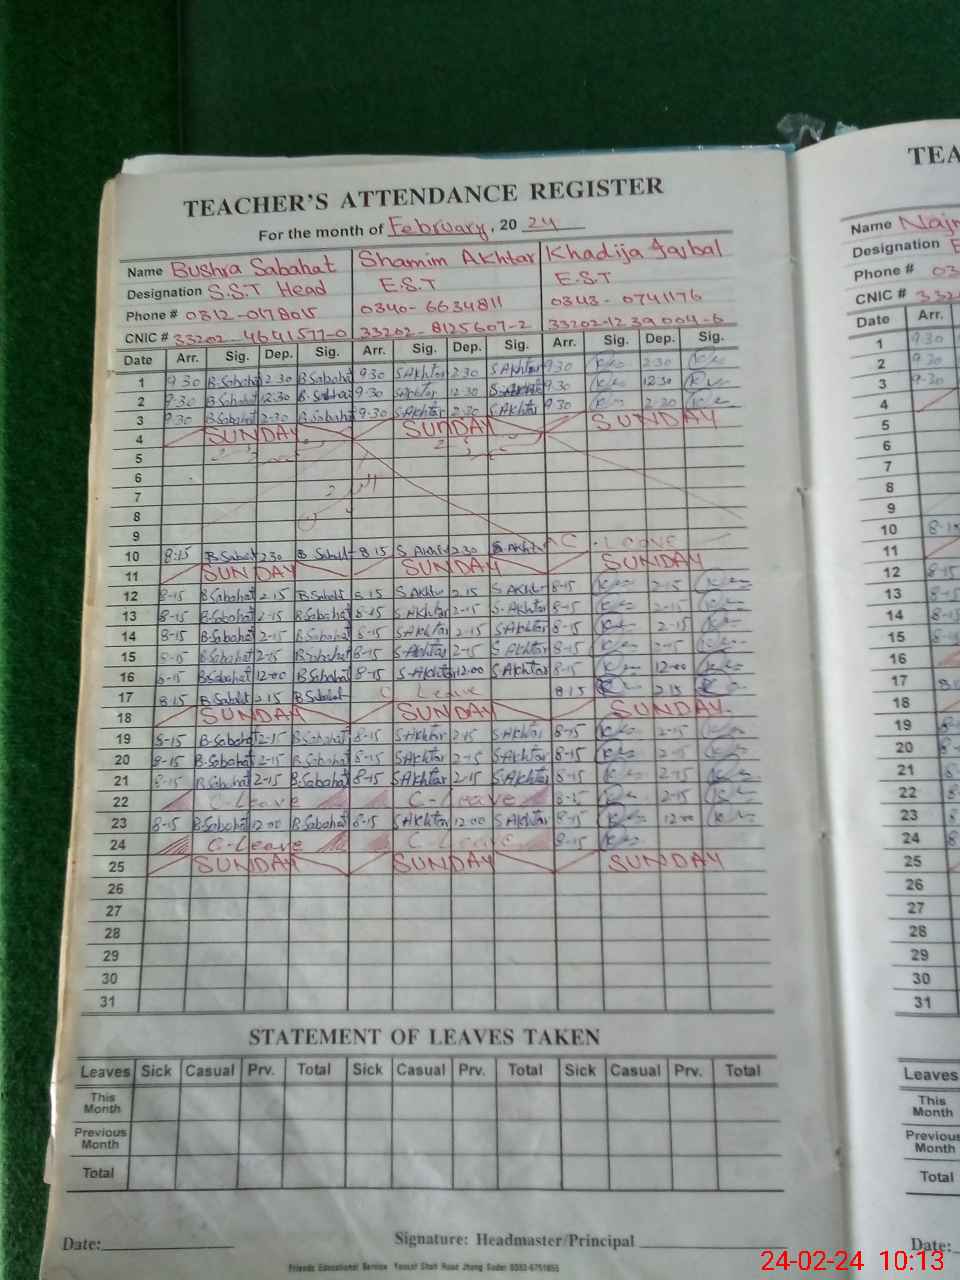 TEACHER'S ATTENDANCE REGISTER
For the month of February, 2024
Name Bushra Sabahat Shamim Akhtar Khadija Iqbal
Designation S.S.T Head E.S.T E.S.T
Phone # 0312-0178015 0340-6634811 0343-0741176
CNIC # 33202-4641577-0 33202-8125607-2 33202-1239004-6
Date Arr. Sig. Dep. Sig. Arr. Sig. Dep. Sig. Arr. Sig. Dep. Sig.
1 9 30 B.Sabahat 2 30 B Sabahat 9 30 S Akhtar 2 30 S Akhtar 9 30 2 30
2 9-30 B.Sabahat 12-30 B.Sabahat 9-30 S Akhtar 12 30 S Akhtar 9 30 12 30
3 9 30 B.Sabahat 2-30 B.Sabahat 9-30 S.Akhtar 2 30 S Akhtar 9 30 2 30
4 SUNDAY SUNDAY SUNDAY
5
6
7
8
9
10 8:15 B.Sabahat 2 30 B Sabahat 8 15 S Akhtar 2 30 S Akhtar C. Leave
11 SUNDAY SUNDAY SUNDAY
12 8-15 B.Sabahat 2 15 B.Sabahat 8 15 S Akhtar 2 15 S Akhtar 8-15 2-15
13 8-15 B.Sabahat 2-15 B.Sabahat 8-15 S.Akhtar 2-15 S.Akhtar 8-15 2-15
14 8-15 B.Sabahat 2-15 B.Sabahat 8-15 S Akhtar 2-15 S Akhtar 8-15 2-15
15 8-15 B.Sabahat 2-15 B.Sabahat 8-15 S.Akhtar 2-15 S Akhtar 8-15 2-15
16 8-15 B.Sabahat 12-00 B.Sabahat 8-15 S-Akhtar 12-00 S Akhtar 8-15 12-00
17 8:15 B.Sabahat 2 15 B.Sabahat C Leave 8 15 2 15
18 SUNDAY SUNDAY SUNDAY
19 8-15 B.Sabahat 2-15 B.Sabahat 8-15 S Akhtar 2-15 S Akhtar 8-15 2-15
20 8-15 B.Sabahat 2-15 B.Sabahat 8-15 S Akhtar 2-15 S Akhtar 8-15 2-15
21 8-15 B.Sabahat 2-15 B.Sabahat 8-15 S Akhtar 2-15 S Akhtar 8-15 2-15
22 C-Leave C-Leave 8-15 2-15
23 8-15 B.Sabahat 12 00 B.Sabahat 8-15 S Akhtar 12 00 S Akhtar 8-15 12-00
24 C-Leave C-Leave 8-15
25 SUNDAY SUNDAY SUNDAY
26
27
28
29
30
31
STATEMENT OF LEAVES TAKEN
Leaves Sick Casual Prv. Total Sick Casual Prv. Total Sick Casual Prv. Total
This Month
Previous Month
Total
Date: Signature: Headmaster/Principal
Friends Educational Service
TEA
Name
Designation
Phone # 03
CNIC #
Date Arr.
1 9 30
2 9 30
3 9-30
4
5
6
7
8
9
10 8-15
11
12 8-15
13 8-15
14 8-15
15
16
17
18
19
20
21
22
23
24
25
26
27
28
29
30
31
Leaves
This Month
Previous Month
Total
Date:
24-02-24 10:13